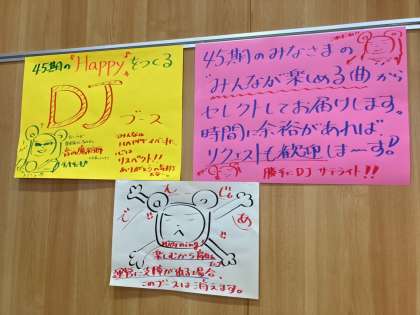 45期の"Happy"をつくる
DJ ブース
みんなの
リスペクト!!
45期のみなさまの
"みんなが楽しめる曲"から
セレクトしてお届けします。
時間に余裕があれば
リクエストも歓迎しまーす!
勝手にDJサテライト!!
warning!
運営に支障が出る場合、
このブースは消えます。